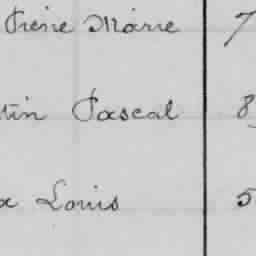 Irène Marie 7
tin Pascal 8
x Louis 5